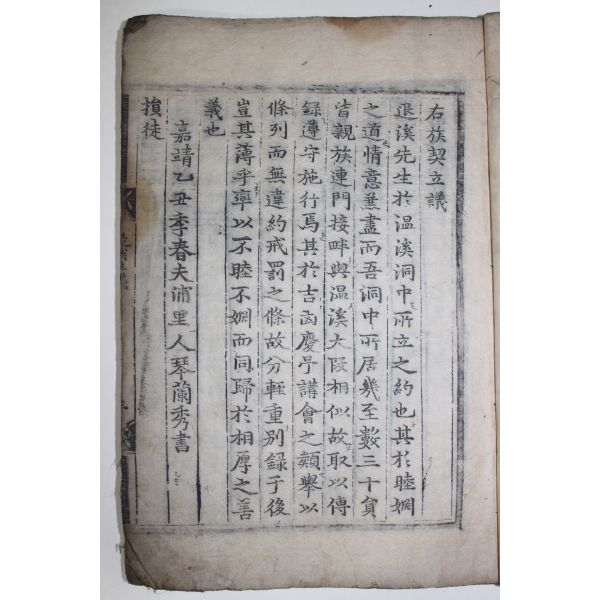 右族契立議
退溪先生於溫溪洞中所立之約也其於睦婣
之道情意兼盡而吾洞中所居幾至數三十負
皆親族連門接畔與溫溪大段相似故取以傳
錄遵守施行焉其於吉凶慶弔講會之類舉以
條列而無違約戒罰之條故分輕重別錄于後
豈其薄乎率以不睦不婣而同歸於相厚之善
義也
嘉靖乙丑季春夫浦里人琴蘭秀書
損徒